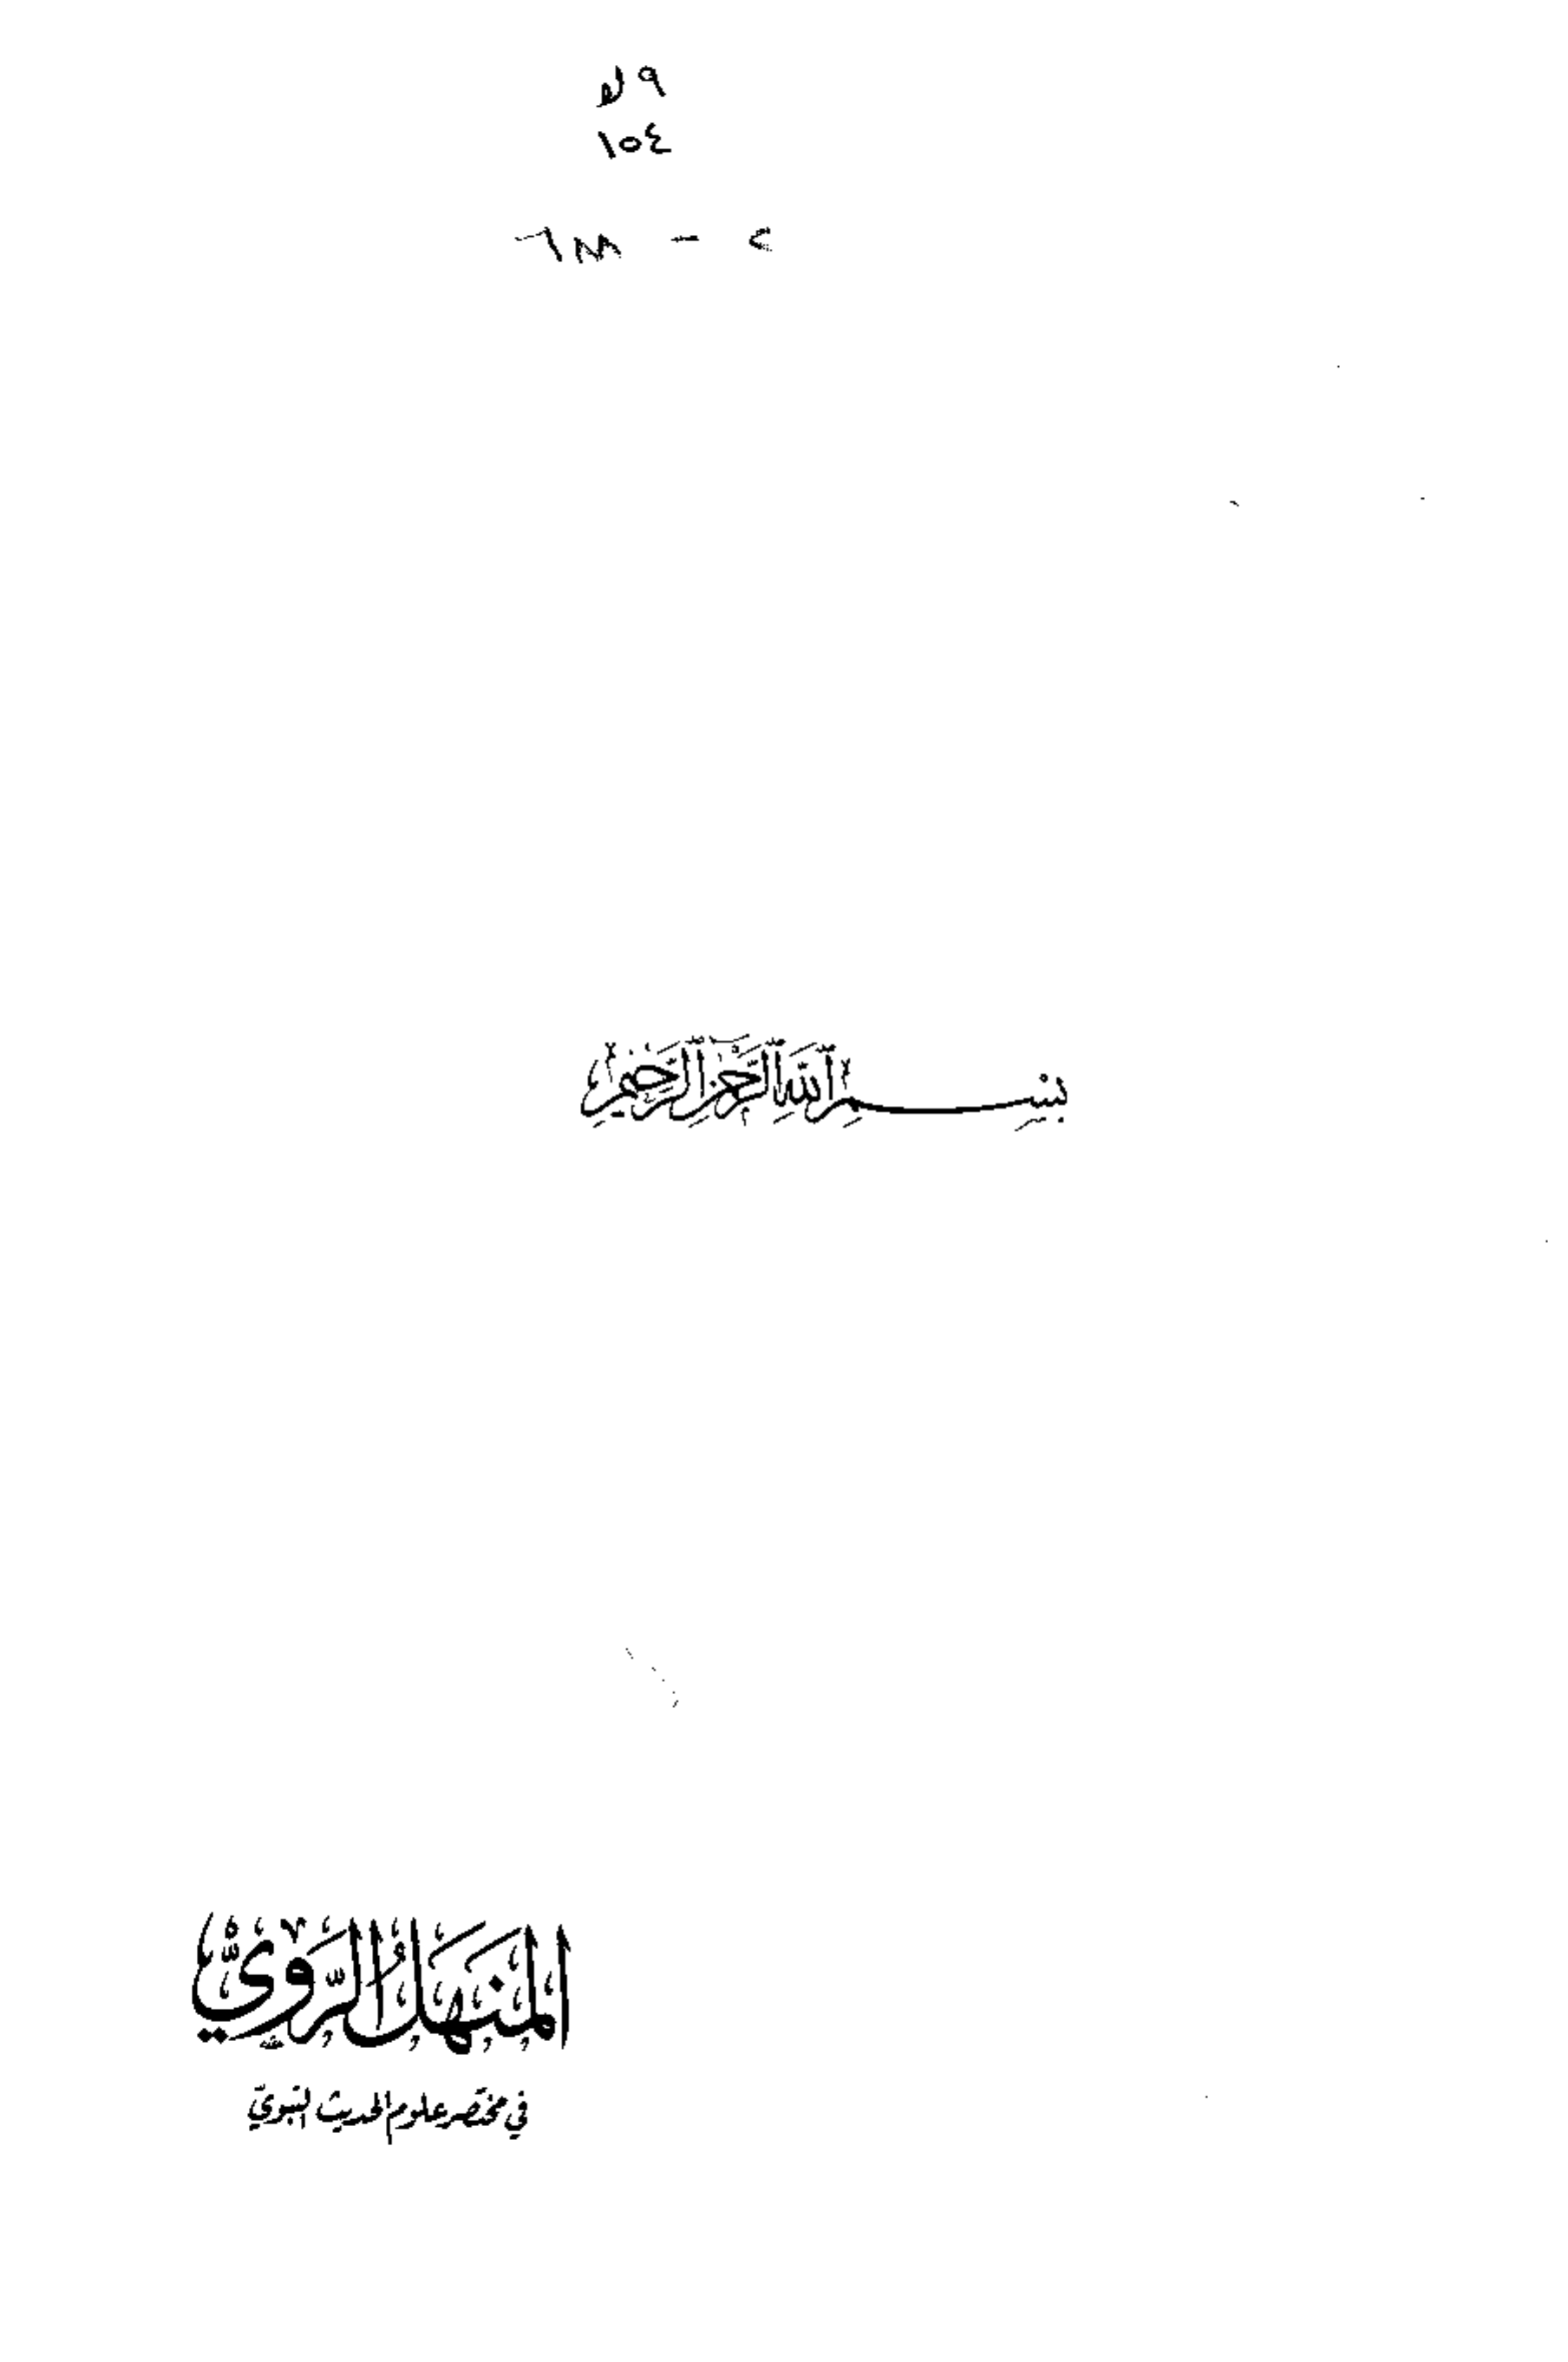 ١٥٤
بِسْمِ اللَّهِ الرَّحْمَٰنِ الرَّحِيمِ
المَنْهَلُ الرَّوِيُّ
في مختصر علوم الحديث النبويّ